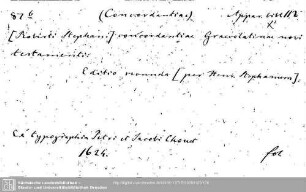 87 b (Concordantiae) Appar.
[Roberti Stephani] concordantiae Graecolatinae novi
testamenti.
Editio secunda [per Henr Stephanum].
Ex typographia Petri et Jacobi Chouet
1624. fol